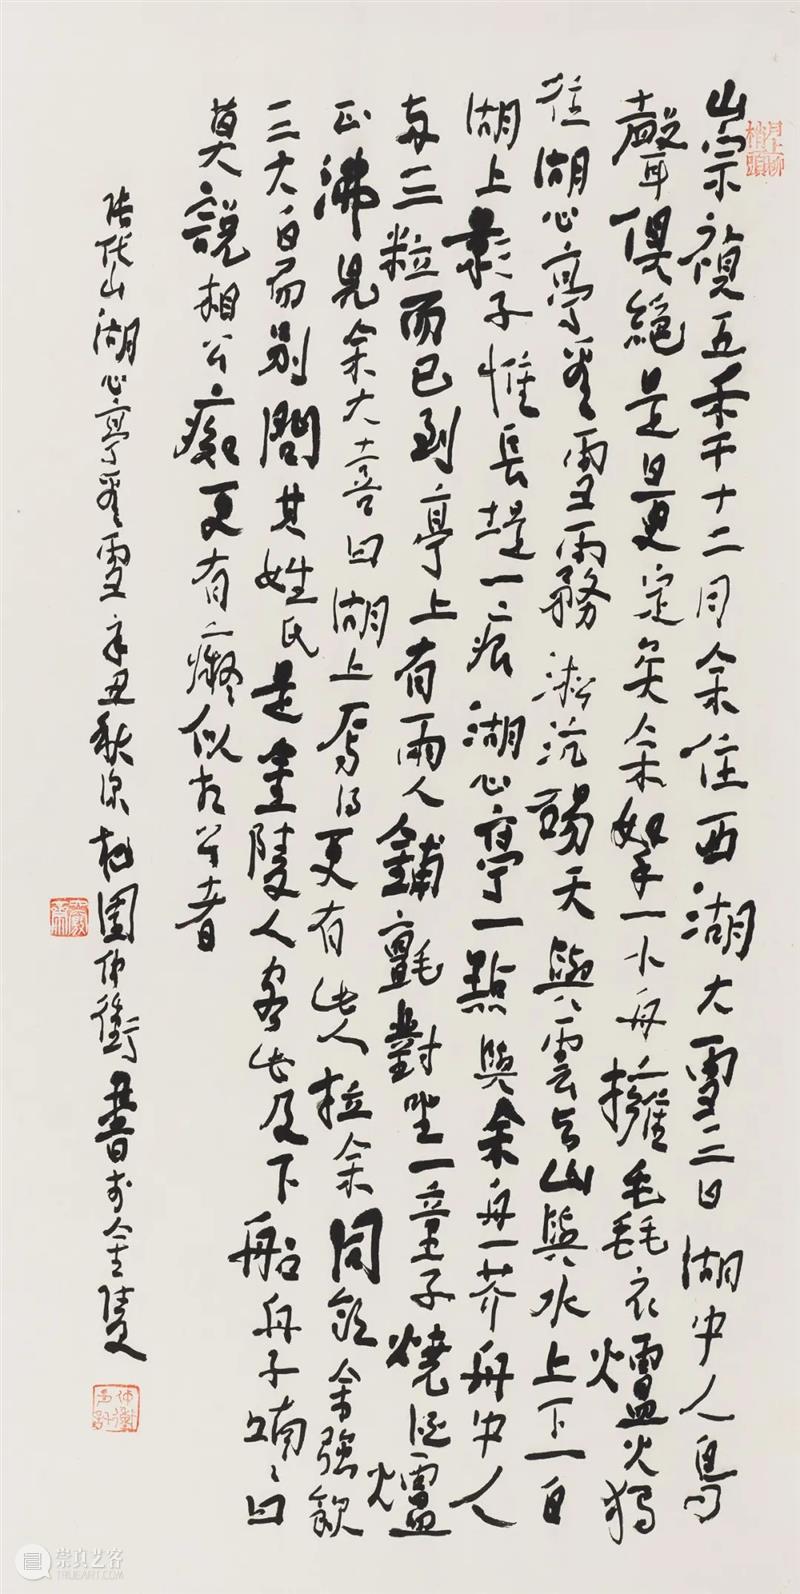 崇禎五秊十二月余住西湖大雪三日湖中人鳥
聲俱絕是日更定矣余拏一小舟擁毳衣爐火獨
往湖心亭看雪霧淞沆碭天與雲与山與水上下一白
湖上影子惟長堤一痕湖心亭一點與余舟一芥舟中人
两三粒而已到亭上有兩人鋪氈對坐一童子燒酒爐
正沸見余大喜曰湖上焉得更有此人拉余同飲余強飲
三大白而別問其姓氏是金陵人客此及下船舟子喃喃曰
莫說相公癡更有癡似相公者
張岱湖心亭看雪辛丑秋深 園仲衡書於金陵
月上柳梢頭
崇真艺客
TRUEART.COM